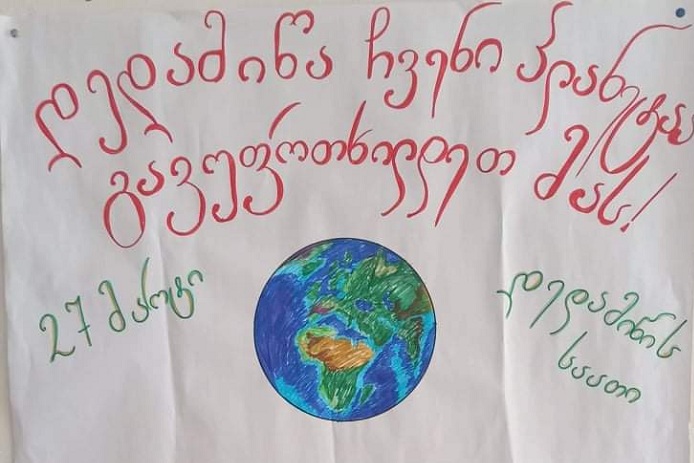 დედამიწა ჩვენი პლანეტაა
გავუფრთხილდეთ მას!
27 მარტი
დედამიწის
საათი